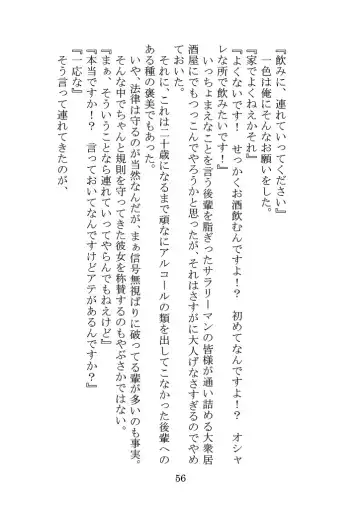 『飲みに、連れていってください』
一色は俺にそんなお願いをした。
『家でよくねえかそれ』
『よくないです！　せっかくお酒飲むんですよ！？　初めてなんですよ！？　オシャ
レな所で飲みたいです！』
いっちょまえなことを言う後輩を脂ぎったサラリーマンの皆様が通い詰める大衆居
酒屋にでもつっこんでやろうかと思ったが、それはさすがに大人げなさすぎるのでやめ
ておいた。
それに、これは二十歳になるまで頑なにアルコールの類を出してこなかった後輩への
ある種の褒美でもあった。
いや、法律は守るのが当然なんだが、まぁ信号無視ばりに破ってる輩が多いのも事実。
そんな中でちゃんと規則を守ってきた彼女を称賛するのもやぶさかではない。
『まぁ、そういうことなら連れていってやらんでもねえけど』
『本当ですか！？　言っておいてなんですけどアテがあるんですか？』
『一応な』
そう言って連れてきたのが、
56